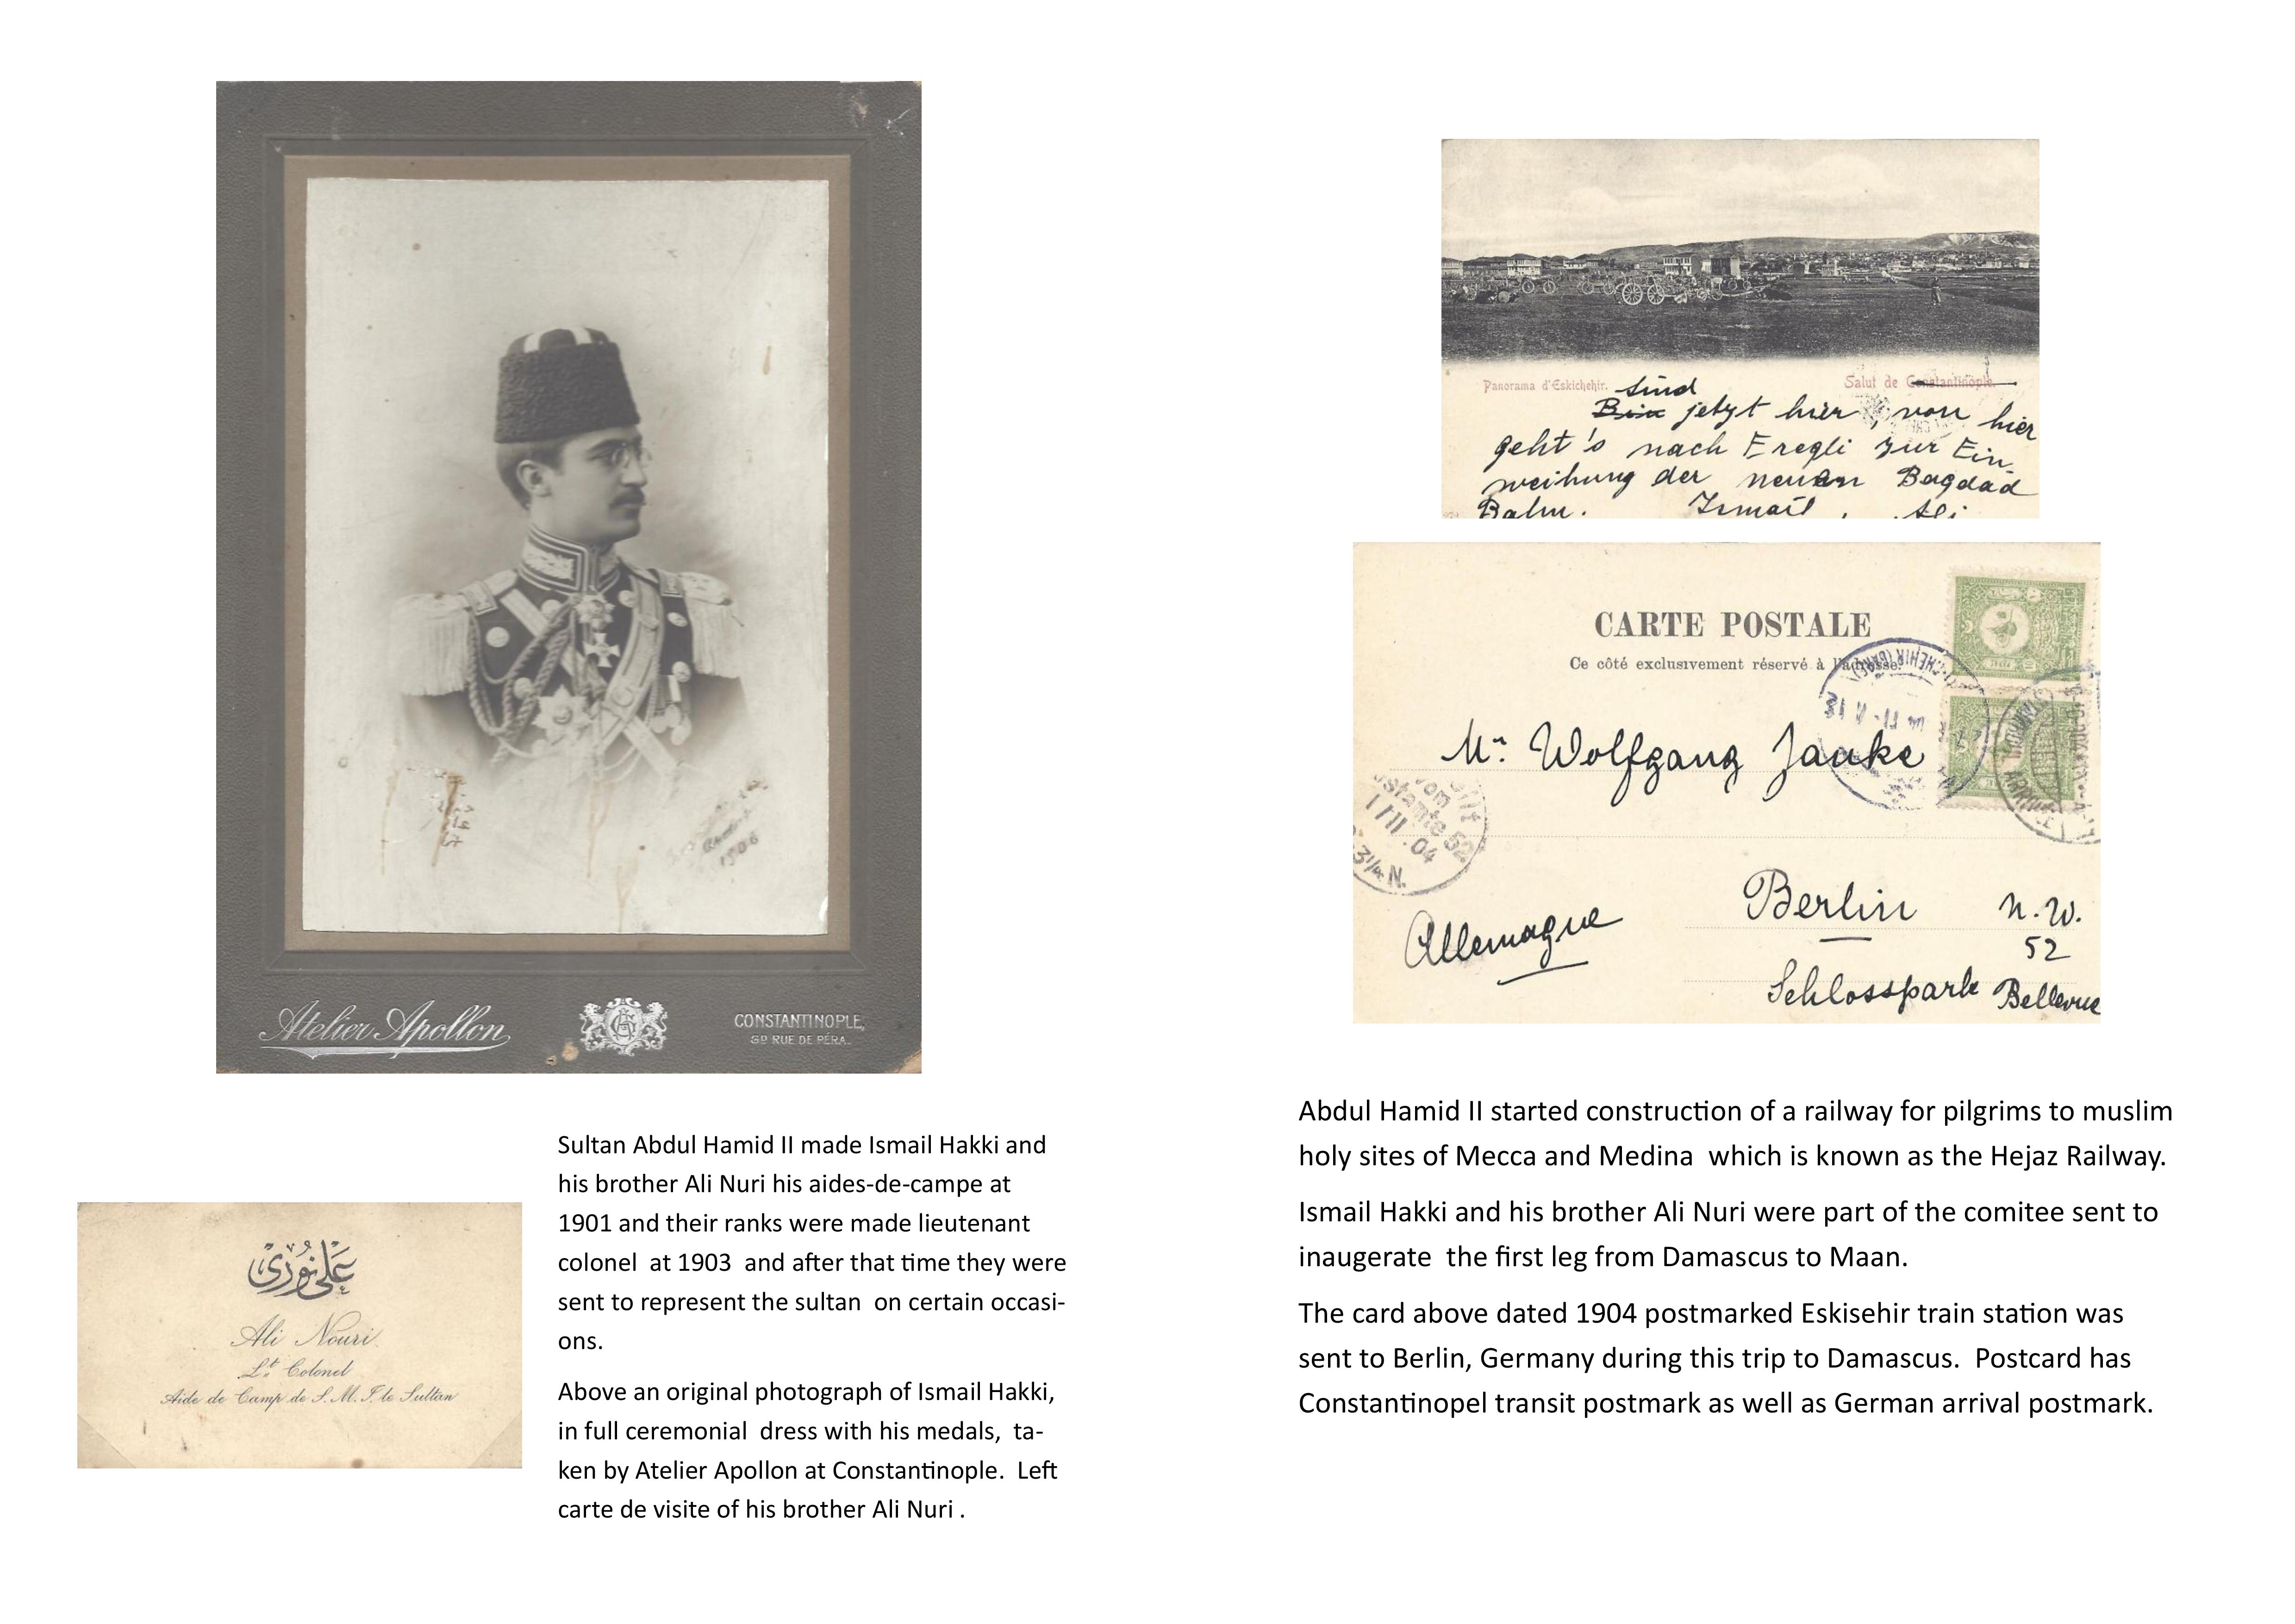 1906
Atelier Apollon
CONSTANTINOPLE,
RUE DE PÉRA.
علی نوری
Ali Nouri
Lt Colonel
Aide de Camp de S. M. I. le Sultan
Sultan Abdul Hamid II made Ismail Hakki and
his brother Ali Nuri his aides-de-campe at
1901 and their ranks were made lieutenant
colonel  at 1903  and after that time they were
sent to represent the sultan  on certain occasi-
ons.
Above an original photograph of Ismail Hakki,
in full ceremonial  dress with his medals,  ta-
ken by Atelier Apollon at Constantinople.  Left
carte de visite of his brother Ali Nuri .
Panorama d'Eskichehir.
Salut de Constantinople.
Sind
Bin jetzt hier, von hier
geht's nach Eregli zur Ein-
weihung der neuen Bagdad
Bahn. Ismail . Ali
CARTE POSTALE
Ce côté exclusivement réservé à l'adresse.
Mr. Wolfgang Janke
vom
1/11.04
3¼ N.
Berlin N.W.
52
Allemagne
Schlosspark Bellevue
Abdul Hamid II started construction of a railway for pilgrims to muslim
holy sites of Mecca and Medina  which is known as the Hejaz Railway.
Ismail Hakki and his brother Ali Nuri were part of the comitee sent to
inaugerate  the first leg from Damascus to Maan.
The card above dated 1904 postmarked Eskisehir train station was
sent to Berlin, Germany during this trip to Damascus.  Postcard has
Constantinopel transit postmark as well as German arrival postmark.